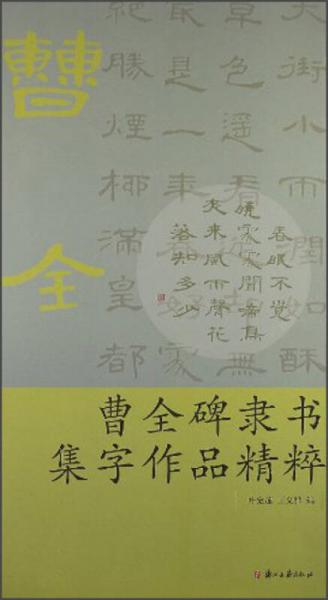 曹全
天街小雨潤如酥
草色遙看近無
最是一年處
絕勝煙柳滿皇都
春眠不覺
曉處處聞啼鳥
夜來風雨聲花
落知多少
曹全碑隶书
集字作品精粹
浙江古籍出版社